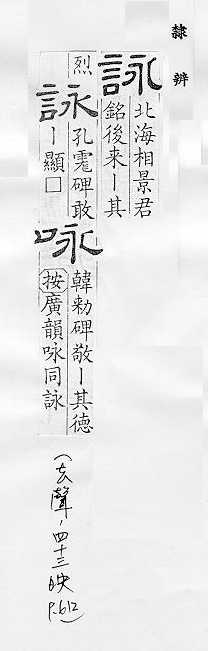 隸辨
詠
北海相景君
銘後来丨其
烈
詠
孔碑敢
丨顯□
咏
韓勑碑敬丨其德
按廣韻咏同詠
(去聲,四十三映 p.612)